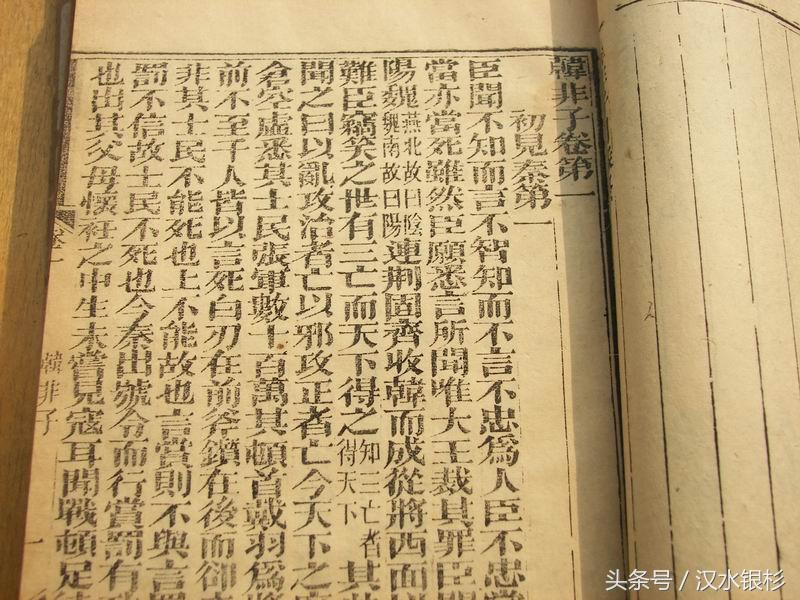 韓非子卷第一
初見秦第一
臣聞不知而言不智知而不言不忠爲人臣不忠當
當亦當死雖然臣願悉言所聞唯大王裁其罪臣聞
陽魏燕北故曰陰魏南故曰陽連荊固齊收韓而成從將西面
難臣竊笑之世有三亡而天下得之知三亡者得天下其
聞之曰以亂攻治者亡以邪攻正者亡今天下之
倉空虛悉其士民張軍數十百萬其頓首戴羽爲
前不至千人皆以言死白刃在前斧鑕在後而卻
非其士民不能死也上不能故也言賞則不與言
罰不信故士民不死也今秦出號令而行賞罰有
也出其父母懷衽之中生未嘗見寇耳聞戰頓足
卷一
韓非子
一
头条号 / 汉水银杉